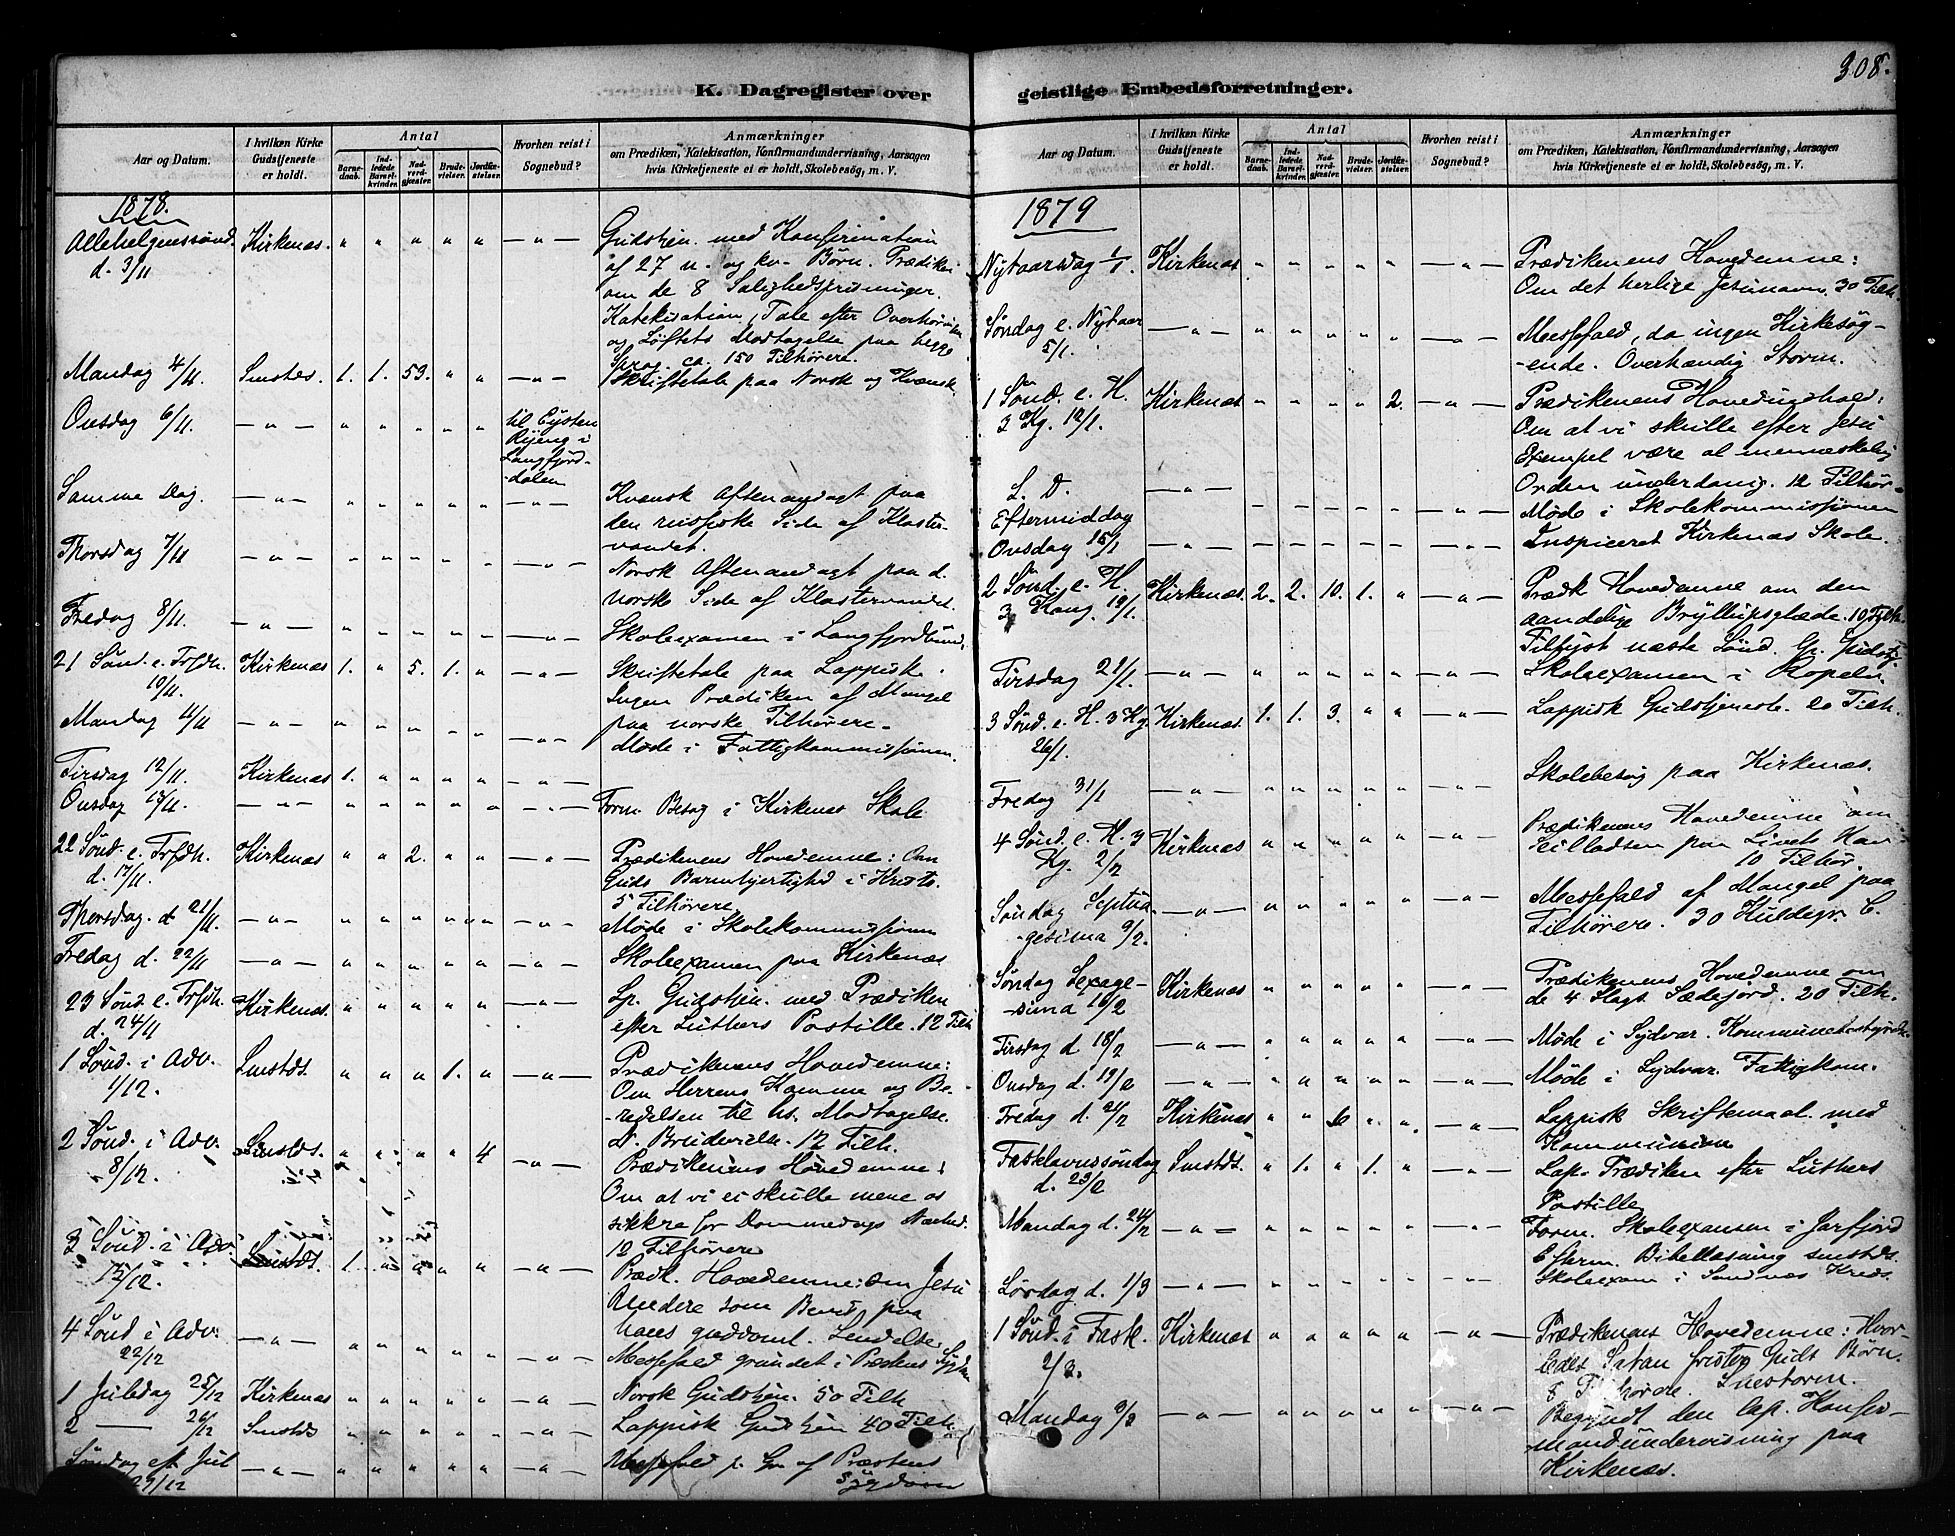 308.
K. Dagregister over
geistlige Embedsforretninger.
Aar og Datum.
I hvilken Kirke Gudstjeneste er holdt.
Antal
Barnedaab.
Indledede Barselkvinder.
Nadverdgjæster.
Brudevielser.
Jordfæstelser.
Hvorhen reist i Sognebud?
Anmærkninger
om Prædiken, Katekisation, Konfirmandundervisning, Aarsagen
hvis Kirketjeneste ei er holdt, Skolebesøg, m. V.
1878.
Allehelgenssønd. Kirkenæs. " " " " " — " — Gudstjen. med Konfirmation
d. 3/11 af 27 n. og kv. Børn. Prædiken
om de 8 Salighedsprisninger.
Katekisation, Tale efter Overhøringen
og Løftets Modtagelse paa begge
Sprog. ca. 150 Tilhørere.
Mandag 4/11 Smstds. 1. 1. 53. " " — " — Skriftetale paa Norsk og Kvensk
Onsdag 6/11. — " — " " " " " til Eysten
i
Langfjord-
dalen
Samme Dag. — " — " " " " " Kvænsk Aftenandagt paa
den russiske Side af Kloster-
vandet.
Thorsdag 7/11 — " — " " " " " — " — Norsk Aftenandagt paa d.
norske Side af Klostervandet.
Fredag 8/11. — " — " " " " " — " — Skoleexamen i Langfjordbund.
21 Sønd. e. Trfdh. Kirkenæs 1. " 5. 1. " — " — Skriftetale paa Lappisk.
10/11. Ingen Prædiken af Mangel
paa norske Tilhørere.
Mandag 11/11 — " — " " " " " — " — Møde i Fattigkommissionen.
Tirsdag 12/11. Kirkenæs 1. " " " " — " —
Onsdag 13/11. — " — " " " " " — " — Form. Besøg i Kirkenæs Skole
22 Sønd. e. Trfdh. Kirkenæs " " 2. " " — " — Prædikenens Hovedemne: Om
d. 17/11. Guds Barmhjertighed i Kristo.
5 Tilhørere
Thorsdag. d. 21/11. — " — " " " " " — " — Møde i Skolekommissionen
Fredag d. 22/11 — " — " " " " " — " — Skoleexamen paa Kirkenæs
23 Sønd. e. Trfdh. Kirkenæs. " " " " " — " — Lp. Gudstjen. med Prædiken
d. 24/11 efter Luthers Postille. 12 Tilh
1 Sønd. i Adv. Smstds. " " " 1. " — " — Prædikenens Hovedemne:
1/12. Om Herrens Komme og Be-
-redelsen til hs. Modtagelse.
N. Brudevielse. 12 Tilh.
2 Sønd. i Adv. Smstds. " " " " 4 — " — Prædikenens Hovedemne:
8/12. Om at vi ei skulle mene os
sikkre for Dommedags Nærhed.
12 Tilhørere
3 Sønd. i Adv. Smstds. 1. " " " " — " — Prædk. Hovedemne: om Jesu
15/12. Undere som Bevis paa
hans guddoml. Sendelse.
4 Sønd i Adv. — " — " " " " " — " — Messefald grundet i Præstens Sygdom
22/12
1 Juledag 25/12 Kirkenæs " " " " " — " — Norsk Gudstjen. 50 Tilh
2 — 26/12 Smstds " " " " " — " — Lappisk Gudstjen 40 Tilh.
Søndag eft Jul — " — " " " " " — " — Messefald p. Gr. af Præstens
29/12 Sygdom
Aar og Datum.
I hvilken Kirke Gudstjeneste er holdt.
Antal
Barnedaab.
Indledede Barselkvinder.
Nadverdgjæster.
Brudevielser.
Jordfæstelser.
Hvorhen reist i Sognebud?
Anmærkninger
om Prædiken, Katekisation, Konfirmandundervisning, Aarsagen
hvis Kirketjeneste ei er holdt, Skolebesøg, m. V.
1879
Nytaarsdag 1/1. Kirkenæs " " " " " — " — Prædikenens Hovedemne:
Om det herlige Jesunavn. 30 Tilh.
Søndag e. Nytaar — " — " " " " " — " — Messefald, da ingen Kirkesøg-
5/1. -ende. Overhændig Storm.
1 Sønd. e. H. Kirkenæs " " " " 2. — " — Prædikenens Hovedindhold:
3 Kg. 12/1. Om at vi skulle efter Jesu
Exempel være al menneskelig
Orden underdanig. 12 Tilhør-
S. D. — " — Møde i Skolekommissionen
Eftermiddag
Onsdag 15/1 — " — — " — Inspiceret Kirkenæs Skole.
2 Sønd. e. H. Kirkenæs. 2. 2. 10. 1. " — " — Prædk Hovedemne om den
3 Kong. 19/1. aandelige Bryllupsglæde. 10 Tilh.
Tillyst næste Sønd. Gudstj
Tirsdag 21/1. — " — " " " " " — " — Skoleexamen i Ropelv.
3 Sønd. e. H. 3 Kg. Kirkenæs. 1. 1. 3. " " — " — Lappisk Gudstjeneste. 20 Tilh.
26/1.
Fredag 31/1 — " — " " " " " — " — Skolebesøg paa Kirkenæs.
4 Sønd. e. H. 3 Kirkenæs " " " " " — " — Prædikenens Hovedemne om
Kg. 2/2 Seilladsen paa Livets Hav
10 Tilhør.
Søndag Septua- — " — " " " " " — " — Messefald af Mangel paa
-gesima 9/2. Tilhørere. 30 Kuldegr. C.
Søndag Sexage- Kirkenæs " " " " " — " — Prædikenens Hovedemne om
-sima 16/2 de 4 Slags Sædejord. 20 Tilh.
Tirsdag d 18/2 — " — " " " " " — " — Møde i Sydvar. Kommunebestyrelse.
Onsdag d. 19/2 — " — " " " " " — " — Møde i Sydvar. Fattigkom.
Fredag d. 21/2 Kirkenæs " " 6 " " — " — Lappisk Skriftemaal med
Kommunion
Fastelavnssøndag Smstds. " 1. " 1. " — " — Lap. Prædiken efter Luthers
d. 23/2 Postille
Mandag d. 24/2 — " — " " " " " — " — Form. Skoleexamen i Jarfjord
Efterm. Bibellæsning smstds.
Lørdag d. 1/3 — " — " " " " " — " — Skoleexam i Sandnæs Kreds.
1 Sønd. i Fast. Kirkenæs " " " " " — " — Prædikenens Hovedemne: Hvor-
2/3. ledes Satan frister Guds Børn.
8 Tilhørere. Snestorm.
Mandag 3/3 — " — " " " " " — " — Begyndt den lap. Konfir-
mandundervisning paa
Kirkenæs.